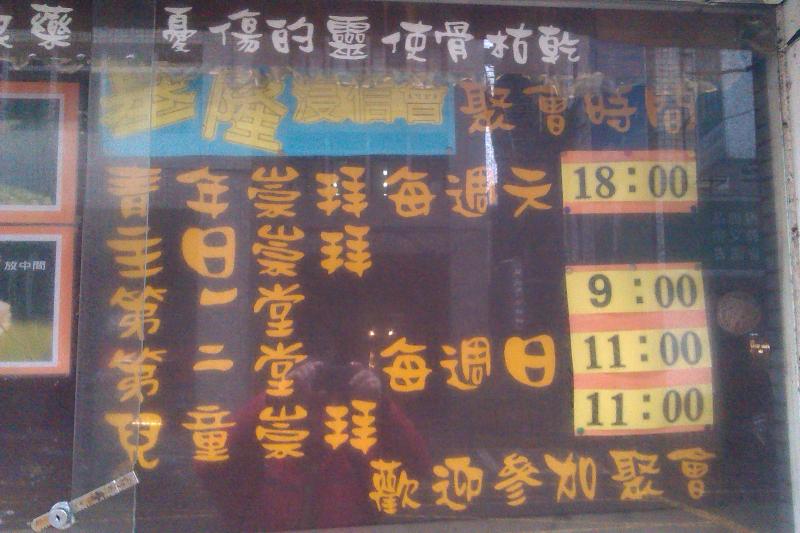 良藥 憂傷的靈使骨枯乾
基隆浸信會 聚會時間
青年崇拜每週六 18:00
主日崇拜
第一堂 9:00
第二堂 每週日 11:00
兒童崇拜 11:00
歡迎參加聚會
放中間